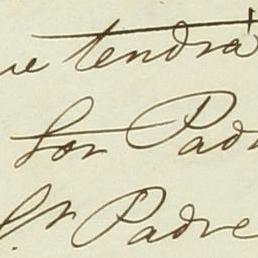 ue tendrá
por Pad
Sr Padre